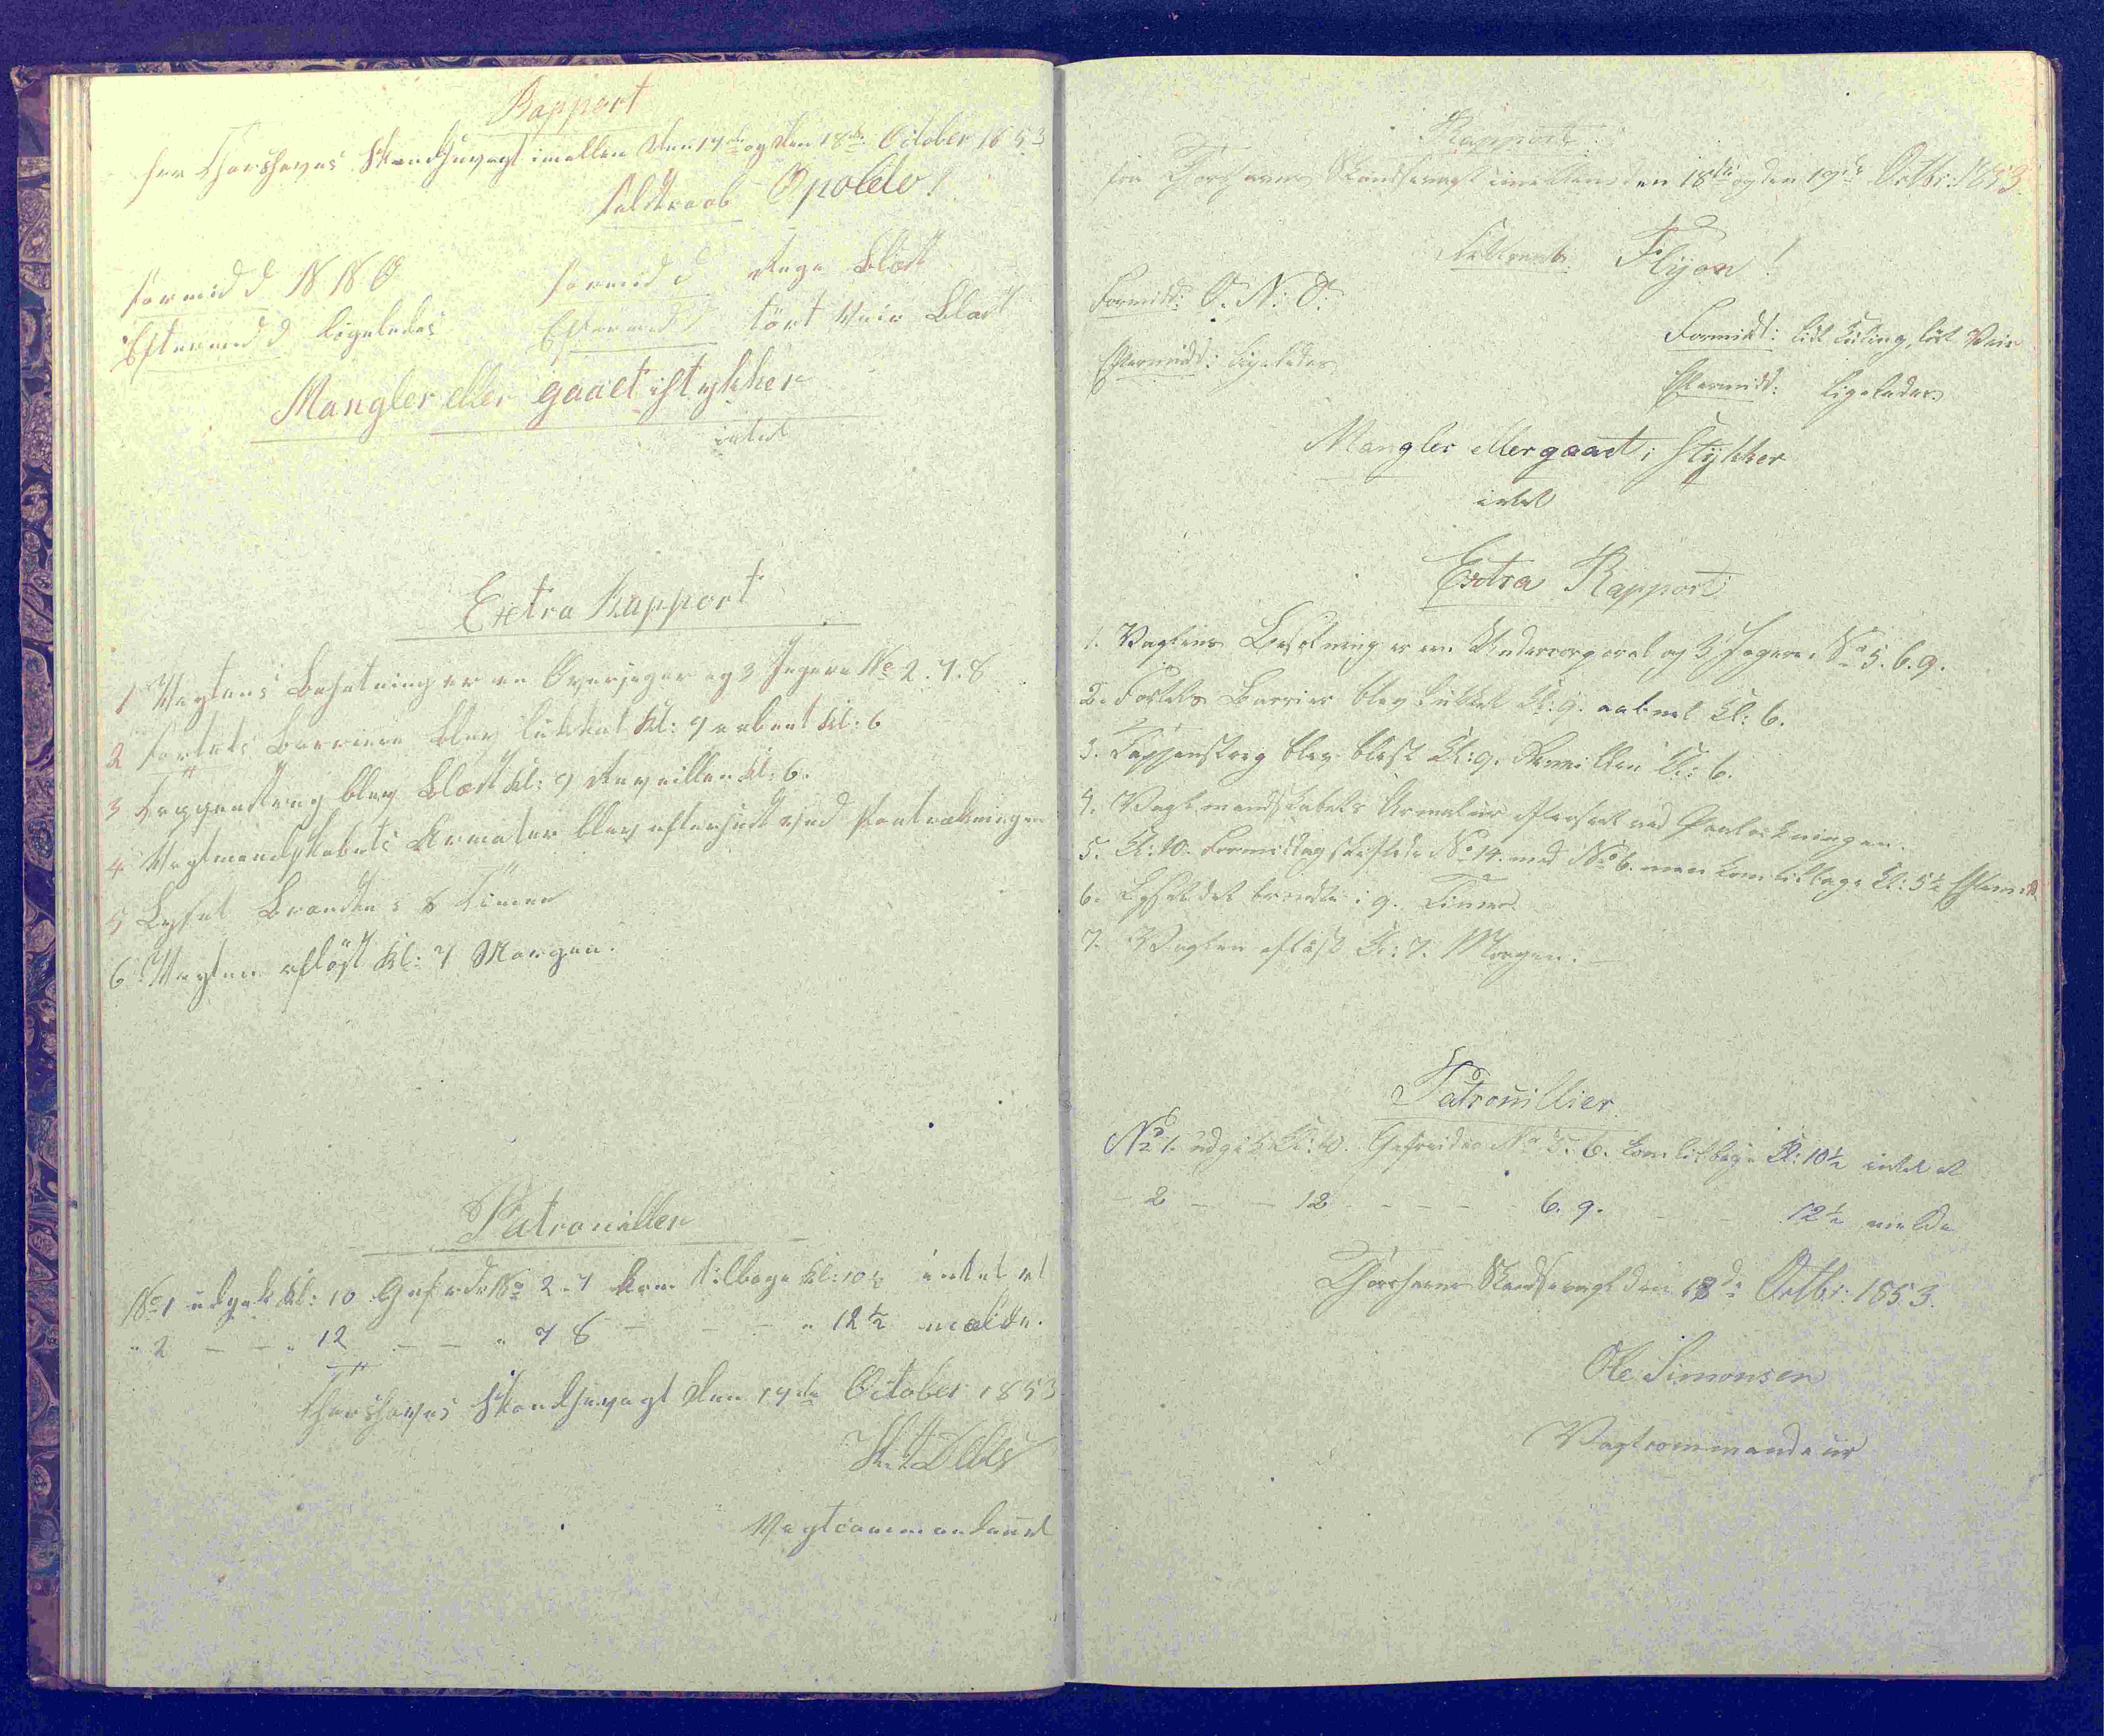 Rapport
fra Thorshavns Skandsevagt imellem Den 17de og Den 18de October 1853
Feltraab Opoldo!
Formidd NNO Formidd Regn Blæst
Eftermidd ligeledes Eftermidd tört Veir Blæst
Mangler eller gaaet istykker
intet
Extra Rapport
1 Vagtens Besætning er en Overjæger og 3 Jægere No 2. 7. 8
2 Fortets Barriere blev lukket Kl: 9 aabnet Kl: 6
3 Tappenstreg blev Blæst Kl: 9 Reveillen Kl: 6.
4 Vagtmandskabets Armatur blev efterseet ved Fratrækningen
5 Lyset Brændte i 8 Timer
6 Vagten aflöst Kl: 7 Morgen.
Patrouiller
No 1 udgik Kl: 10 Gefreder No 2. 7 kom tilbage Kl: 10½ intet at
" 2 — — " 12 — — " 7 8 — — — " 12½ melde.
Thorshavns Skandsevagt Den 17de October 1853
Vagtcommandeur
Rapport
fra Thorshavns Skandsevagt imellem den 18de og den 19de Octbr: 1853.
Feltraab: Flyon!
Formidd: O. N. O.
Formidd: lidt Kuling, tört Veir
Eftermidd: ligeledes
Eftermidd: ligeledes
Mangler eller gaaet i Stykker
intet
Extra Rapport
1. Vagtens Besætning er en Undercorporal og 3 Jægere No 5. 6. 9.
2. Fortets Barrier blev lukket Kl: 9. aabnet Kl: 6.
3. Tappenstreg blev blæst Kl: 9. Reveillen Kl: 6.
4. Vagtmandskabets Armatur efterseet ved Fratrækningen.
5. Kl: 10. Formiddag skiftede No 14. med No 6. men kom tilbage Kl: 5½ Eftermidd
6. Lyset det brændte i 9. Timer
7. Vagten aflöst Kl: 7. Morgen. —
Patrouillier
No 1. udgik Kl: 10. Gefreider No 5. 6. kom tilbage Kl: 10½ intet at
- 2 — — 12 - - - - 6. 9. - - 12½ melde
Thorshavns Skandsevagt den 18de Octbr: 1853.
Ole Simonsen
Vagtcommandeur